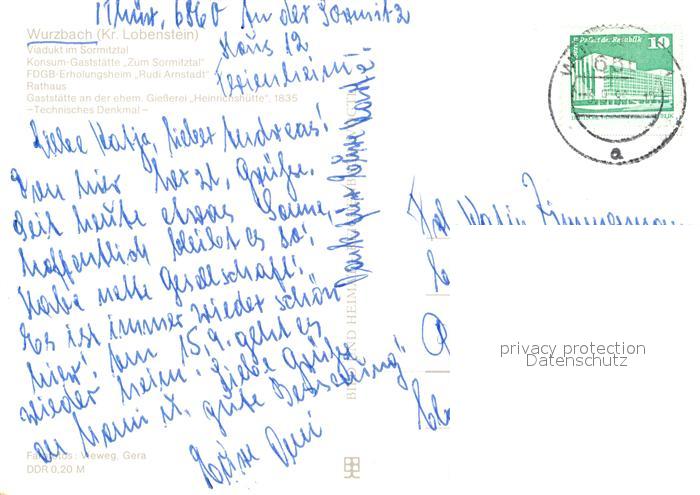 1 Thür., 6860 An der Sormitz
Haus 12
Ferienheim
Wurzbach (Kr. Lobenstein)
Viadukt im Sormitztal
Konsum-Gaststätte „Zum Sormitztal"
FDGB-Erholungsheim „Rudi Arnstadt"
Rathaus
Gaststätte an der ehem. Gießerei „Heinrichshütte", 1835
—Technisches Denkmal—
Liebe Katja, lieber Andreas!
Von hier herzl. Grüße.
Seit heute etwas Sonne,
hoffentlich bleibt es so!
Habe nette Gesellschaft!
Es ist immer wieder schön
hier! Am 15.9. geht es
wieder heim. Liebe Grüße
an u. gute Besserung!
Eure
Dank für Eure Karte!
BILD UND HEIMAT
Palast der Republik
10
65
a
Zimmermann
privacy protection
Datenschutz
Farbfotos: Vieweg, Gera
DDR 0,20 M